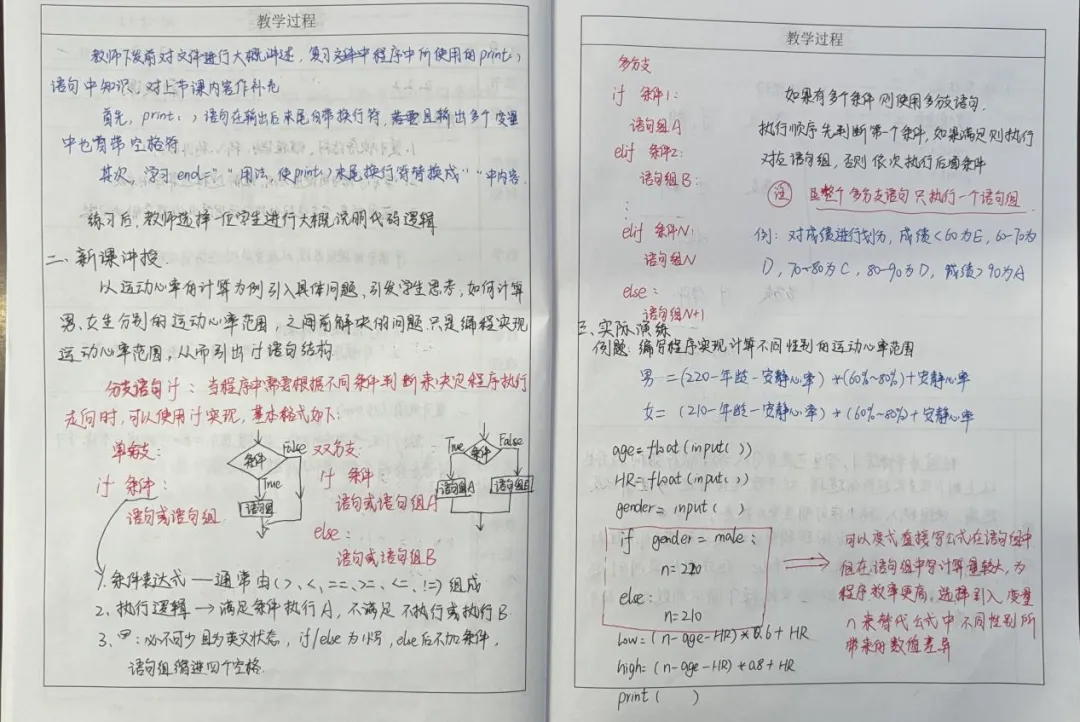 教学过程
教师下发前对文件进行大概讲述，复习文件中程序中所使用的print()
语句中知识，对上节课内容作补充
首先，print()语句在输出后末尾自带换行符，需要且输出多个变量
中也自带空格符
其次，学习end=" "用法，使print()末尾换行符替换成" "中内容.
练习后，教师选择一位学生进行大概说明代码逻辑
二、新课讲授.
以运动心率的计算为例引入具体问题，引发学生思考，如何计算
男、女生分别的运动心率范围，之间前解决的问题只是编程实现
运动心率范围，从而引出if语句结构.
分支语句if：当程序中需要根据不同条件判断来决定程序执行
走向时，可以使用if实现，基本格式如下：
单分支：
if 条件：
语句或语句组
条件
False
True
语句组
双分支：
if 条件：
语句或语句组A
else：
语句或语句组B
True
条件
False
语句组A
语句组B
1. 条件表达式——通常由(>、<、==、>=、<=、!=)组成
2. 执行逻辑→满足条件执行A，不满足 不执行或执行B
3. 必不可少且为英文状态，if/else为小写，else后不加条件，
语句组缩进四个空格.
教学过程
多分支
if 条件1：
语句组A
elif 条件2：
语句组B：
⋮
elif 条件N：
语句组N
else：
语句组N+1
如果有多个条件则使用多分支语句.
执行顺序先判断第一个条件，如果满足则执行
对应语句组，否则依次执行后面条件
注 且整个多分支语句只执行一个语句组
例：对成绩进行划分，成绩<60为E，60-70为
D，70-80为C，80-90为D，成绩>90为A
三、实际演练
例题：编写程序实现计算不同性别的运动心率范围
男=(220-年龄-安静心率)*(60%~80%)+安静心率
女=(210-年龄-安静心率)*(60%~80%)+安静心率
age=float(input())
HR=float(input())
gender=input( )
if gender=male：
n=220
else：
n=210
low=(n-age-HR)*0.6+HR
high=(n-age-HR)*0.8+HR
print( )
可以直接写公式在语句组中
但在语句组中写计算量较大，为
程序效率更高，选择引入变量
n来替代公式中不同性别所
带来的数值差异